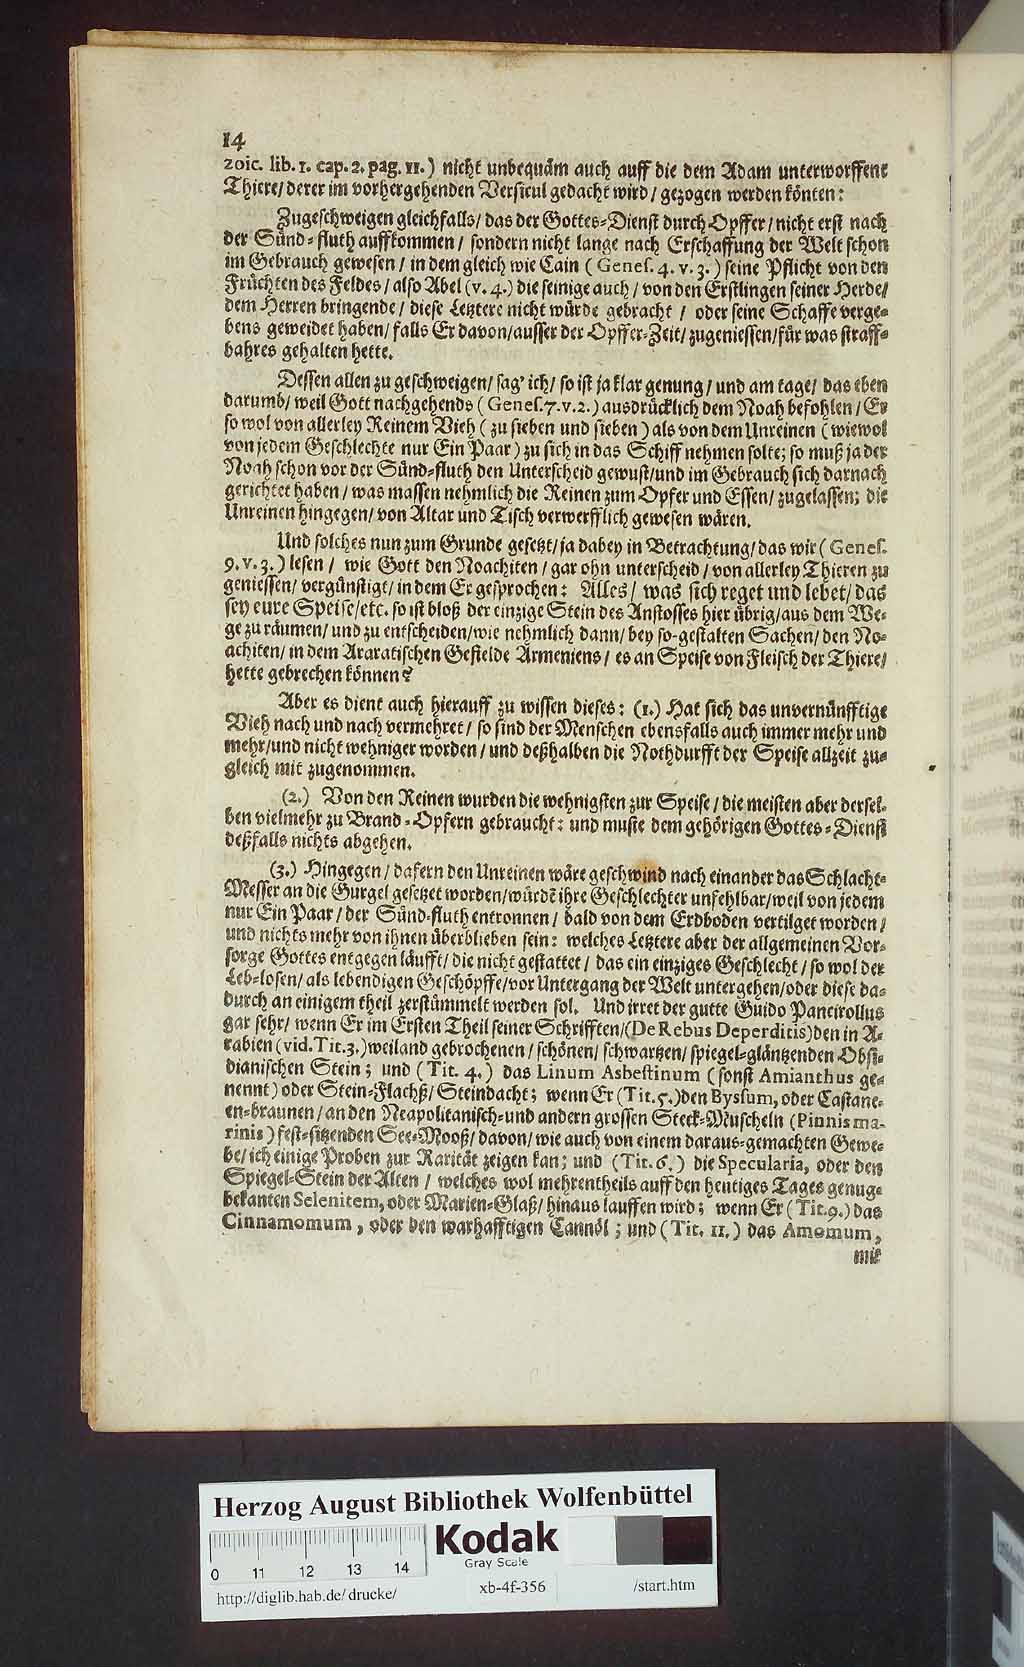 14
zoic. lib. 1. cap. 2. pag. 11.) nicht unbequäm auch auff die dem Adam unterworffene
Thiere/ derer im vorhergehenden Versicul gedacht wird/ gezogen werden könten:
Zugeschweigen gleichfalls/ das der Gottes-Dienst durch Opffer/ nicht erst nach
der Sünd-fluth auffkommen/ sondern nicht lange nach Erschaffung der Welt schon
im Gebrauch gewesen/ in dem gleich wie Cain (Genes. 4. v. 3.) seine Pflicht von den
Früchten des Feldes/ also Abel (v. 4.) die seinige auch/ von den Erstlingen seiner Herde/
dem Herren bringende/ diese Letztere nicht würde gebracht/ oder seine Schaffe verge-
bens geweidet haben/ falls Er davon/ ausser der Opffer-Zeit/ zugeniessen/ für was straff-
bahres gehalten hette.
Dessen allen zu geschweigen/ sag' ich/ so ist ja klar genung/ und am tage/ das eben
darumb/ weil Gott nachgehends (Genes. 7. v. 2.) ausdrücklich dem Noah befohlen/ Er
so wol von allerley Reinem Vieh (zu sieben und sieben) als von dem Unreinen (wiewol
von jedem Geschlechte nur Ein Paar) zu sich in das Schiff nehmen solte; so muß ja der
Noah schon vor der Sünd-fluth den Unterscheid gewust/ und im Gebrauch sich darnach
gerichtet haben/ was massen nehmlich die Reinen zum Opfer und Essen/ zugelassen; die
Unreinen hingegen/ von Altar und Tisch verwerfflich gewesen wären.
Und solches nun zum Grunde gesetzt/ ja dabey in Betrachtung/ das wir (Genes.
9. v. 3.) lesen/ wie Gott den Noachiten/ gar ohn unterscheid/ von allerley Thieren zu
geniessen/ vergünstigt/ in dem Er gesprochen: Alles/ was sich reget und lebet/ das
sey eure Speise/ etc. so ist bloß der einzige Stein des Anstosses hier übrig/ aus dem We-
ge zu räumen/ und zu entscheiden/ wie nehmlich dann/ bey so-gestalten Sachen/ den No-
achiten/ in dem Araratischen Gefielde Armeniens/ es an Speise von Fleisch der Thiere/
hette gebrechen können?
Aber es dient auch hierauff zu wissen dieses: (1.) Hat sich das unvernünfftige
Vieh nach und nach vermehret/ so sind der Menschen ebensfalls auch immer mehr und
mehr/ und nicht wehniger worden/ und deßhalben die Nothdurfft der Speise allzeit zu-
gleich mit zugenommen.
(2.) Von den Reinen wurden die wehnigsten zur Speise/ die meisten aber dersel-
ben vielmehr zu Brand-Opfern gebraucht: und muste dem gehörigen Gottes-Dienst
deßfalls nichts abgehen.
(3.) Hingegen/ dafern den Unreinen wäre geschwind nach einander das Schlacht-
Messer an die Gurgel gesetzet worden/ würdē ihre Geschlechter unfehlbar/ weil von jedem
nur Ein Paar/ der Sünd-fluth entronnen/ bald von dem Erdboden vertilget worden/
und nichts mehr von ihnen überblieben sein: welches Letztere aber der allgemeinen Vor-
sorge Gottes entgegen läufft/ die nicht gestattet/ das ein einziges Geschlecht/ so wol der
Leb-losen/ als lebendigen Geschöpffe/ vor Untergang der Welt untergehen/ oder diese da-
durch an einigem theil zerstümmelt werden sol. Und irret der gutte Guido Pancirollus
gar sehr/ wenn Er im Ersten Theil seiner Schrifften/ (De Rebus Deperditis) den in A-
rabien (vid. Tit. 3.) weiland gebrochenen/ schönen/ schwartzen/ spiegel-gläntzenden Obsi-
dianischen Stein; und (Tit. 4.) das Linum Asbestinum (sonst Amianthus ge-
nennt) oder Stein-Flachß/ Steindacht; wenn Er (Tit. 5.) den Byssum, oder Castane-
en-braunen/ an den Neapolitanisch- und andern grossen Steck-Muscheln (Pinnis ma-
rinis) fest-sitzenden See-Mooß/ davon/ wie auch von einem daraus-gemachten Gewe-
be/ ich einige Proben zur Rarität zeigen kan; und (Tit. 6.) die Specularia, oder den
Spiegel-Stein der Alten/ welches wol mehrentheils auff den heutiges Tages genug-
bekanten Selenitem, oder Marien-Glaß/ hinaus lauffen wird; wenn Er (Tit. 9.) das
Cinnamomum, oder den warhafftigen Cannöl; und (Tit. 11.) das Amomum,
mit
Herzog August Bibliothek Wolfenbüttel
Kodak
Gray Scale
0 11 12 13 14
http://diglib.hab.de/drucke/ xb-4f-356 /start.htm